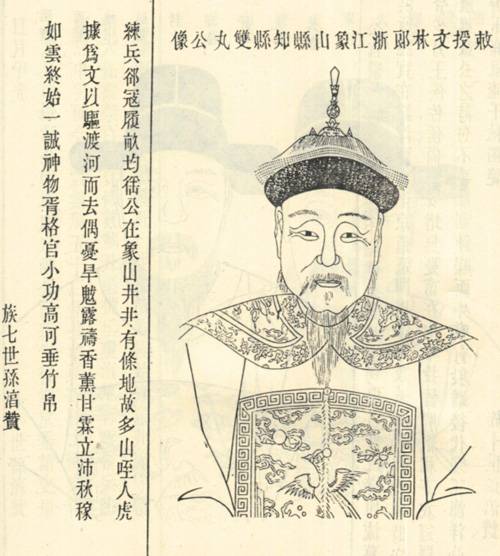 敕授文林郎浙江象山縣知縣雙丸公像
練兵郤寇履畝均徭公在象山井井有條地故多山咥人虎
據爲文以驅渡河而去偶憂旱魃露禱香薰甘霖立沛秋稼
如雲終始一誠神物胥格官小功高可垂竹帛
族七世孫贊